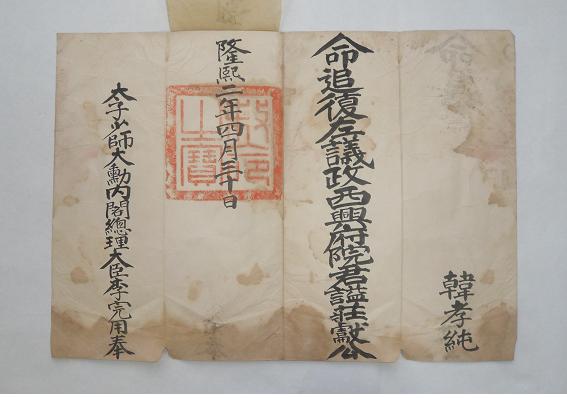 韓孝純
命追復左議政西興府院君諡莊獻公
隆熙二年四月三十日
勅命之寶
太子少師大勳內閣總理大臣李完用奉